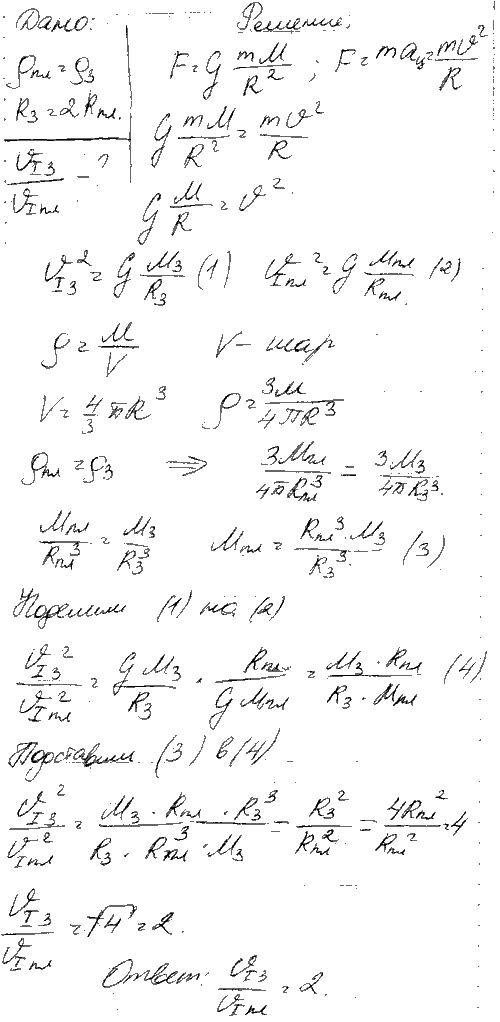 Дано:
ρпл = ρз
Rз = 2Rпл.
υIз/υIпл – ?
Решение:
F = G mM/R² ; F = maц = mυ²/R
G mM/R² = mυ²/R
G M/R = υ²
υIз² = G Mз/Rз (1) υIпл² = G Mпл/Rпл. (2)
ρ = M/V V – шар
V = 4/3 πR³ ρ = 3M/4πR³
ρпл = ρз ⇒ 3Mпл/4πRпл³ = 3Mз/4πRз³.
Mпл/Rпл³ = Mз/Rз³ Mпл = Rпл³·Mз/Rз³. (3)
Поделим (1) на (2)
υIз²/υIпл² = GMз/Rз · Rпл/GMпл = Mз·Rпл/Rз·Mпл (4)
Подставим (3) в (4)
υIз²/υIпл² = Mз·Rпл·Rз³/Rз·Rпл³·Mз = Rз²/Rпл² = 4Rпл²/Rпл² = 4
υIз/υIпл = √4 = 2.
Ответ: υIз/υIпл = 2.